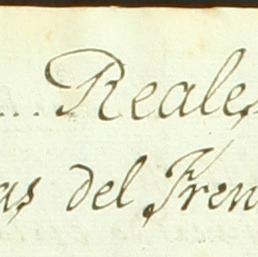 Reales
as del Fren